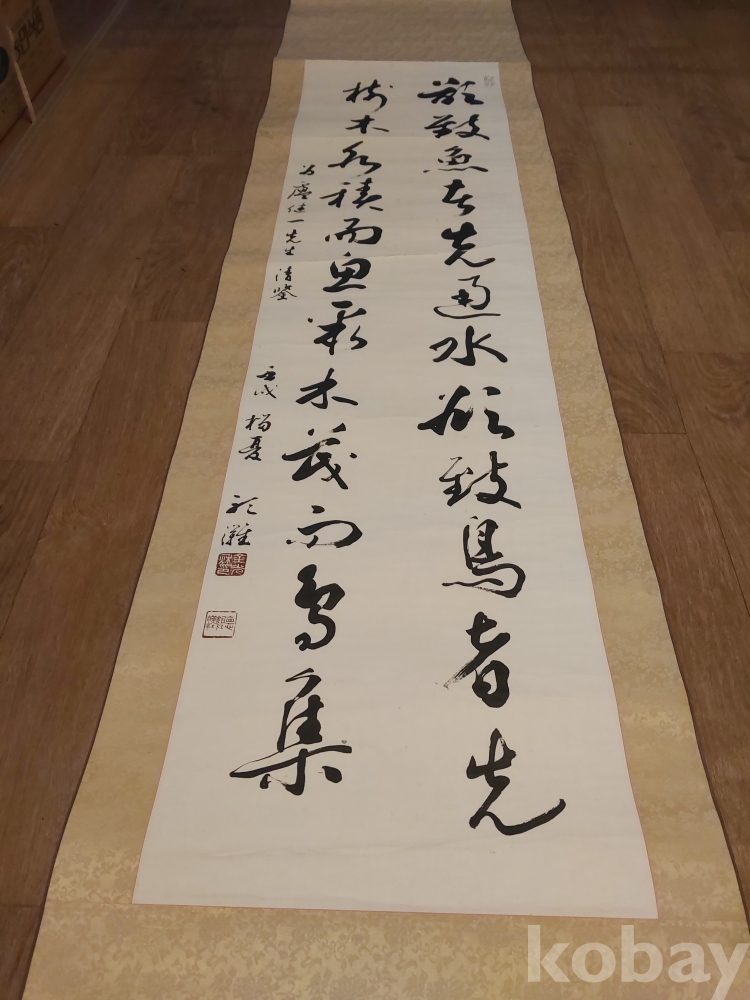 欲致魚者先通水欲致鳥者先
樹木水積而魚聚木茂而鳥集
為盧健一先生清鑒
壬戌榴夏
kobay